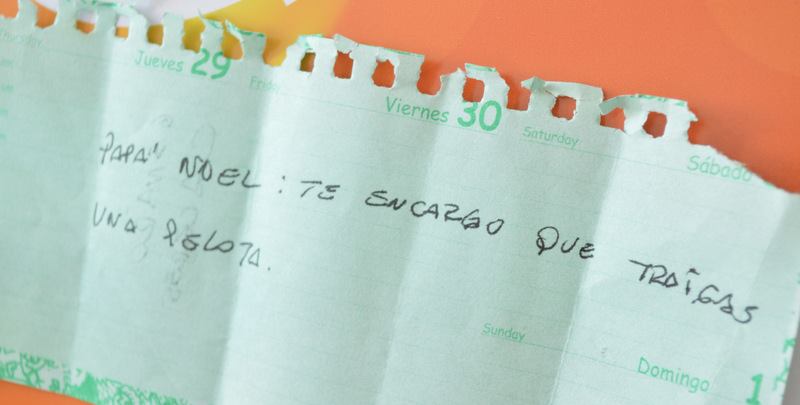 Thursday
Jueves 29
Friday
Viernes 30
Saturday
Sábado
PAPA NOEL : TE ENCARGO QUE TRAIGAS
UNA PELOTA.
Sunday
Domingo 1